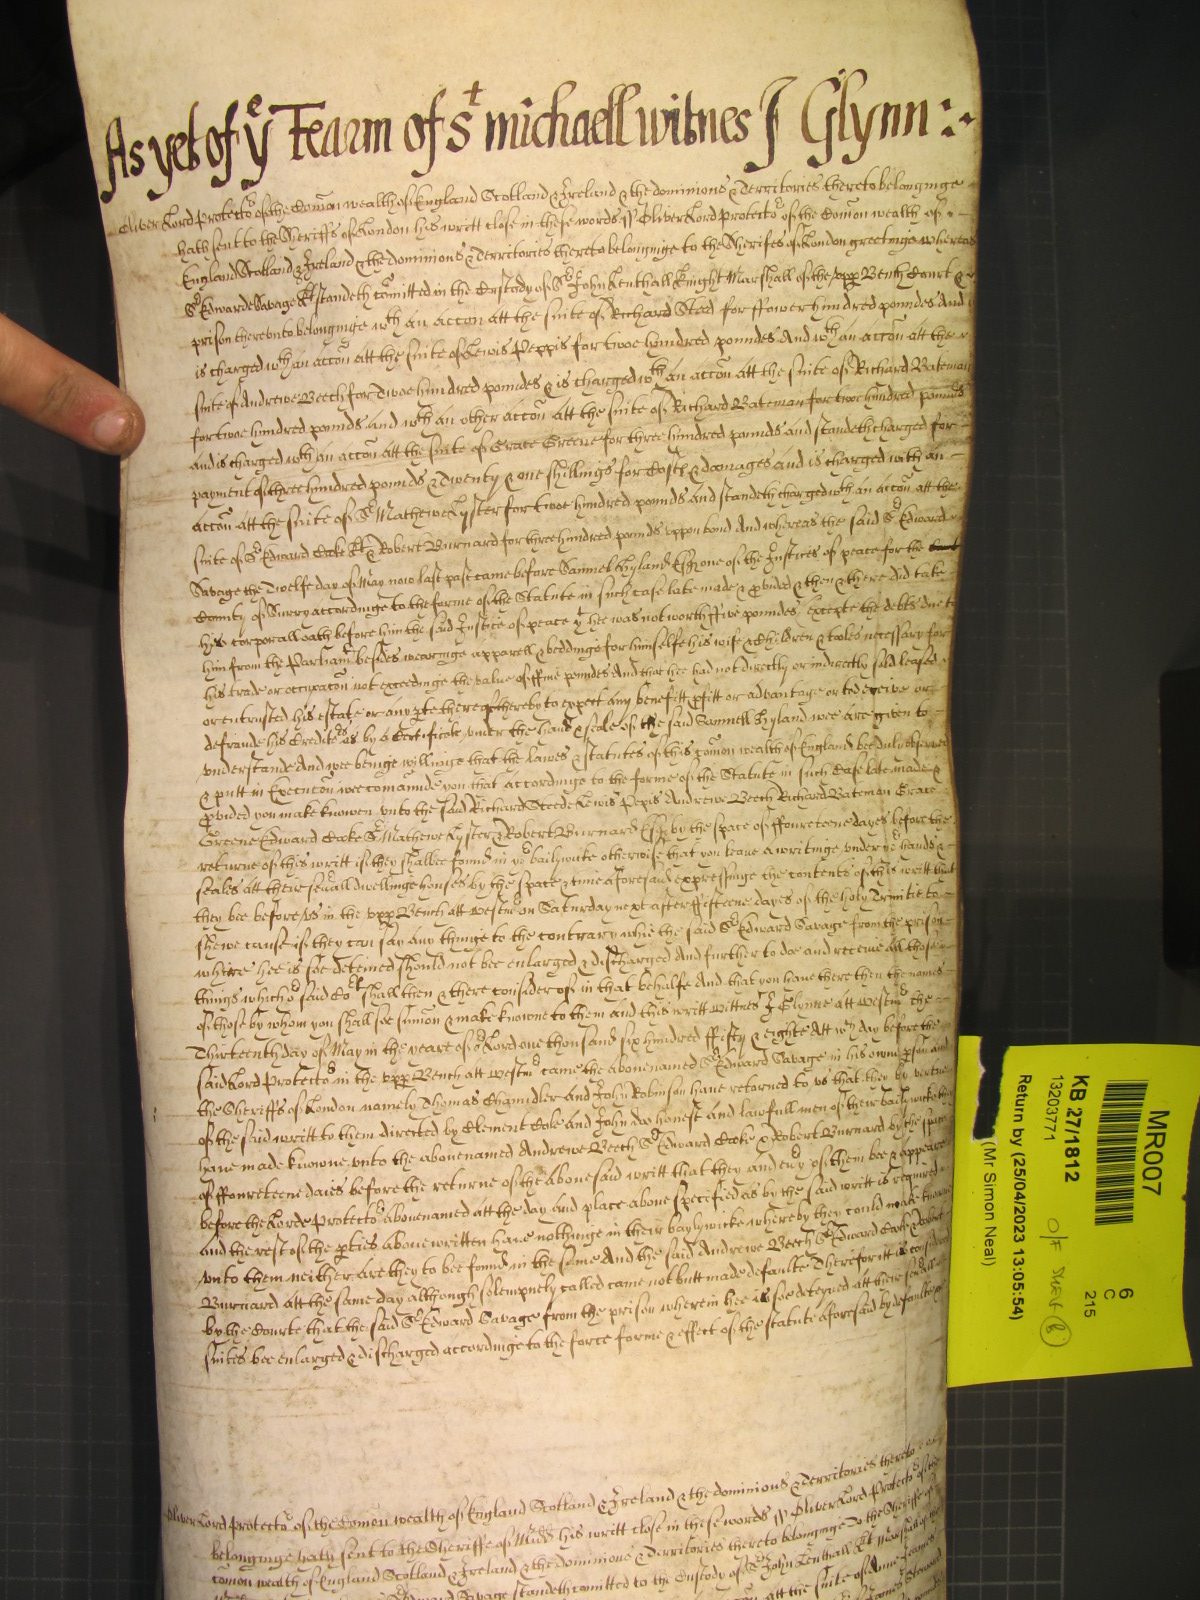 As yet of ye Tearm of St michaell witnes J Glynn
Oliver Lord Protector of the Comon wealth of England Scotland & Ireland & the dominions & Territories thereto belonginge
hath sent to the Sheriffs of London his writt close in these words ss Oliver Lord Protector of the Comon wealth of
England Scotland & Ireland & the dominions & Territories thereto belonginge to the Sherifes of London greetinge whereas
Sr Edwarde Savage Kt standeth comitted in the Custody of Sr John Lenthall Knight Marshall of the upp Bench Court &
prison thereunto belonginge wth an accon att the suite of Richard Sted for ffower hundred poundes And
is charged wth an accon att the suite of Lewis Peppis for twoe hundred poundes And wth an accon att the
suite of Andrewe Beech for Twoe hundred poundes & is charged wth an accon att the suite of Richard Bateman
for twoe hundred pounds and wth an other accon att the suite of Richard Bateman for twoe hundred pounds
and is charged wth an accon att the suite of Grace Greene for three hundred pounds and standeth charged for
payment of three hundred pounds & Twenty & one shillings for Costs & damages and is charged with an
accon att the suite of Sr Mathewe Lyster for twoe hundred pounds And standeth charged wth an accon att the
suite of Sr Edward Cooke Kt & Robert Burnard for three hundred pounds uppon bond And whereas the said Sr Edward
Savage the Twelfe day of May now last past came before Samuel Hyland Esq one of the Justices of peace for the
County of Surry accordinge to the forme of the Statute in such case late made & pvided & then & there did take
his corporall oath before him the said Justice of peace yt hee was not worth ffive poundes excepte the debts due to
him from the Parliamt besides wearinge apparell & beddinge for himselfe his wife & Children & tooles necessary for
his trade or occupacon not exceedinge the value of ffive poundes And that hee had not directly or indirectly sold leased
or entrusted his estate or any pte thereof thereby to expect any benefitt pfitt or advantage or to deceive or
defraude his Creditors as by a Certificate under the hand & seale of the said Samuell Hyland wee are given to
understande And wee beinge willinge that the lawes & statutes of this comon wealth of England bee duly observed
& putt in Execucon wee comaunde you that accordinge to the forme of the Statute in such Case late made &
pvided you make knowen unto the said Richard Steede Lewis Pepis Andrewe Beech Richard Bateman Grace
Greene Edward Cooke Sr Mathewe Lyster & Robert Burnard Esq by the space of ffoureteene dayes before the
returne of this writt if they shall bee found in yor bailywike otherwise that you leave a writinge under yor hands &
seales att their sevall dwellinge houses by the space & time aforesaid expressinge the contents of this writt that
they bee before us in the upp Bench att westmr on Saturday next after ffifteene dayes of the holy Trinitie to
shewe cause if they can say any thinge to the contrary why the said Sr Edward Savage from the prison
where hee is soe deteined should not bee enlarged & discharged And further to doe and receive all those
things which or said Cort shall then & there consider of in that behalfe And that you have there then the names
of those by whom you shall soe sumon & make knowne to them and this writt wittnes J Glynne att westmr the
Thirteenth day of May in the yeare of or Lord one thousand six hundred ffifty & eighte Att wch day before the
said Lord Protector in the upp Bench att westmr came the abovenamed Sr Edward Savage in his owne pson and
the Sheriffs of London namely Thomas Chamdler and John Robinson have returned to us that they by vertue
of the said writt to them directed by Clement Cole and John Doo honest and lawfull men of their bailywicke they
have made knowne unto the abovenamed Andrewe Beech Sr Edward Cooke & Robert Burnard by the space
of ffoureteene daies before the returne of the abovesaid writt that they and evy of them bee & appeare
before the Lorde Protector abovenamed att the day and place above specefied as by the said writt is required
and the rest of the pties above written have nothinge in their baylywicke whereby they could make knowne
unto them neither are they to bee found in the same And the said Andrewe Beech Sr Edward Cooke & Robert
Burnard att the same day although solempnely called came not butt made defaulte Therefor itt is considered
by the Courte that the said Sr Edward Savage from the prison wherein hee is soe deteyned att their sevall
suites bee enlarged & discharged accordinge to the force forme & effect of the statute aforesaid by defaulte
Oliver Lord Protector of the Comon wealth of England Scotland & Ireland & the dominions & Territories thereto
belonginge hath sent to the Sheriffe of Midd his writt close in these words ss Oliver Lord Protector of the
Comon wealth of England Scotland & Ireland & the dominions & Territories thereto belonginge To the Sheriffe of
Savage standeth comitted to the Custody of Sr John Lenthall Kt Marshall of the
att the suite of Anne
MR007
6
C
215
KB 27/1812
13203771
Return by (25/04/2023 13:05:54)
(Mr Simon Neal)